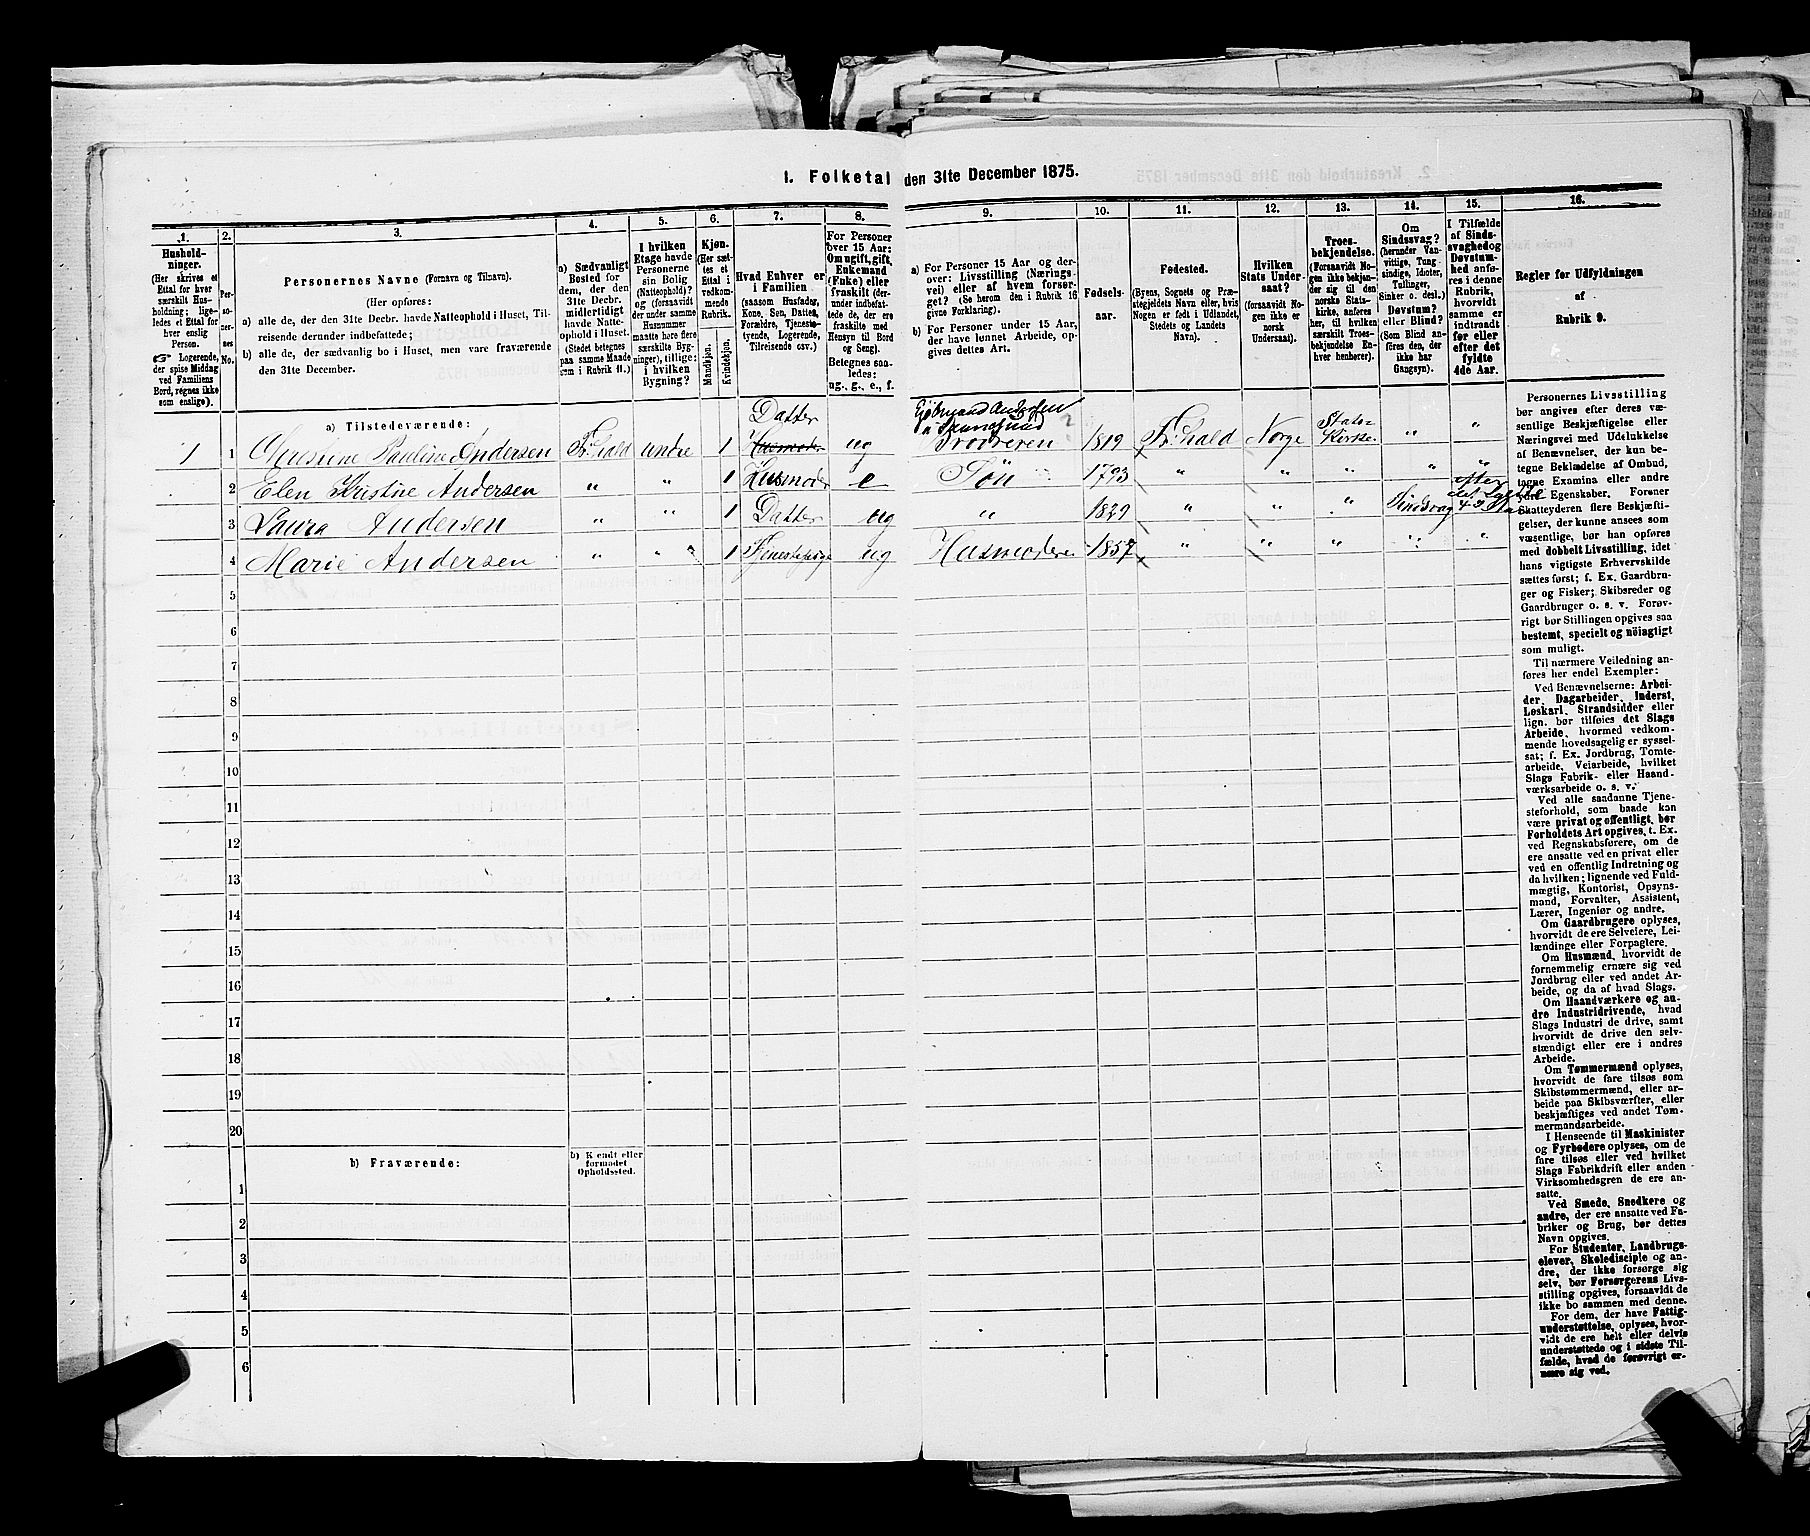 1. Folketal den 31te December 1875.
1. 2. 3. 4. 5. 6. 7. 8. 9. 10. 11. 12. 13. 14. 15. 16.
Hushold-
ninger.
(Her skrives et
Ettal for hver
særskilt Hus-
holdning; lige-
ledes et Ettal for
hver enslig
Person.
☞ Logerende,
der spise Middag
ved Familiens
Bord, regnes ikke
som enslige).
Per-
soner-
nes
No.
Personernes Navne (Fornavn og Tilnavn).
(Her opføres:
a) alle de, der den 31te Decbr. havde Natteophold i Huset, Til-
reisende derunder indbefattede;
b) alle de, der sædvanlig bo i Huset, men vare fraværende
den 31te December.
a) Sædvanligt
Bosted for
dem, der den
31te Decbr.
midlertidigt
havde Natte-
ophold i Huset.
(Stedet betegnes
paa samme Maade
som i Rubrik 11.)
I hvilken
Etage havde
Personerne
sin Bolig
(Natteophold)?
og (forsaavidt
der under samme
Husnummer
maatte høre flere
særskilte Byg-
ninger), tillige:
i hvilken
Bygning?
Kjøn.
(Her sæt-
tes et
Ettal i
vedkom-
mende
Rubrik.
Mandkjøn.
Kvindekjøn.
Hvad Enhver er
i Familien
(saasom Husfader,
Kone, Søn, Datter,
Forældre, Tjeneste-
tyende, Logerende,
Tilreisende osv.)
For Personer
over 15 Aar:
Om ugift, gift,
Enkemand
(Enke) eller
fraskilt (der-
under indbefat-
tede de, der ere
fraskilte med
Hensyn til Bord
og Seng).
Betegnes saa-
ledes:
ug., g., e., f.
a) For Personer 15 Aar og der-
over: Livsstilling (Nærings-
vei) eller af hvem forsør-
get? (Se herom den i Rubrik 16
givne Forklaring).
b) For Personer under 15 Aar,
der have lønnet Arbeide, op-
gives dettes Art.
Fødsels-
aar.
Fødested.
(Byens, Sognets og Præ-
stegjeldets Navn eller, hvis
Nogen er født i Udlandet,
Stedets og Landets
Navn).
Hvilken
Stats Under-
saat?
(forsaavidt No-
gen ikke er
norsk
Undersaat).
Troes-
bekjendelse.
(Forsaavidt No-
gen ikke bekjen-
der sig til den
norske Stats-
kirke, anføres
her, til hvilken
særskilt Troes-
bekjendelse En-
hver henhører).
Om
Sindssvag?
(herunder Van-
vittige, Tung-
sindige, Idioter,
Tullinger,
Sinker o. desl.)
Døvstum?
eller Blind?
(Som Blind an-
føres den, der
ikke har
Gangsyn).
I Tilfælde
af Sinds-
svaghedog
Døvstum-
hed anfø-
res i denne
Rubrik,
hvorvidt
samme er
indtraadt
før eller
efter det
fyldte
4de Aar.
Regler for Udfyldningen
af
Rubrik 9.
a) Tilstedeværende:
Datter
1 1 Pauline Andersen Fr.hald undre 1 Husmoder ug Broderen 1819 Fr.hald Norge Stats- Kirke. " "
2 Elen Kristine Andersen " " 1 Husmoder e Søn 1793 " " " " "
3 Laura Andersen " " 1 Datter ug " 1829 " " " Sindsvag efter det fyldte 4de Aar
4 Marie Andersen " " 1 Tjenestepige ug Husmoderen 1857 " " " " "
5
6
7
8
9
10
11
12
13
14
15
16
17
18
19
20
b) Fraværende:
b) Kjendt eller
formodet
Opholdssted.
1
2
3
4
5
6
Personernes Livsstilling
bør angives efter deres væ-
sentlige Beskjæftigelse eller
Næringsvei med Udelukkelse
af Benævnelser, der kun be-
tegne Beklædelse af Ombud,
tagne Examina eller andre
ydre Egenskaber. Forener
Skatteyderen flere Beskjæfti-
gelser, der kunne ansees som
væsentlige, bør han opføres
med dobbelt Livsstilling, idet
hans vigtigste Erhvervskilde
sættes først; f. Ex. Gaardbru-
ger og Fisker; Skibsreder og
Gaardbruger o. s. v. Forøv-
rigt bør Stillingen opgives saa
bestemt, specielt og nöiagtigt
som muligt.
Til nærmere Veiledning an-
føres her endel Exempler:
Ved Benævnelserne: Arbei-
der, Dagarbeider, Inderst,
Løskarl, Strandsidder eller
lign. bør tilføies det Slags
Arbeide, hvormed vedkom-
mende hovedsagelig er syssel-
sat; f. Ex. Jordbrug, Tomte-
arbeide, Veiarbeide, hvilket
Slags Fabrik- eller Haand-
værksarbeide o. s. v.
Ved alle saadanne Tjene-
steforhold, som baade kan
være privat og offentligt, bør
Forholdets Art opgives, t. Ex.
ved Regnskabsførere, om de
ere ansatte ved en privat eller
ved en offentlig Indretning og
da hvilken; lignende ved Fuld-
mægtig, Kontorist, Opsyns-
mand, Forvalter, Assistent,
Lærer, Ingeniør og andre.
Om Gaardbrugere oplyses,
hvorvidt de ere Selveiere, Lei-
lændinge eller Forpagtere.
Om Husmænd, hvorvidt de
fornemmelig ernære sig ved
Jordbrug eller ved andet Ar-
beide, og da af hvad Slags.
Om Haandværkere og an-
dre Industridrivende, hvad
Slags Industri de drive, samt
hvorvidt de drive den selv-
stændigt eller ere i andres
Arbeide.
Om Tømmermænd oplyses,
hvorvidt de fare tilsøs som
Skibstømmermænd, eller ar-
beide paa Skibsværfter, eller
beskjæftiges ved andet Tøm-
mermandsarbeide.
I Henseende til Maskinister
og Fyrbødere oplyses, om de
fare tilsøs eller ved hvilket
Slags Fabrikdrift eller anden
Virksomhedsgren de ere an-
satte.
Ved Smede, Snedkere og
andre, der ere ansatte ved Fa-
briker og Brug, bør dettes
Navn opgives.
For Studenter, Landbrugs-
elever, Skoledisciple og an-
dre, der ikke forsørge sig
selv, bør Forsørgerens Livs-
stilling opgives, forsaavidt de
ikke bo sammen med denne.
For dem, der have Fattig-
understøttelse, oplyses, hvor-
vidt de ere helt eller delvis
understøttede og i sidste Til-
fælde, hvad de forøvrigt er-
nære sig ved.